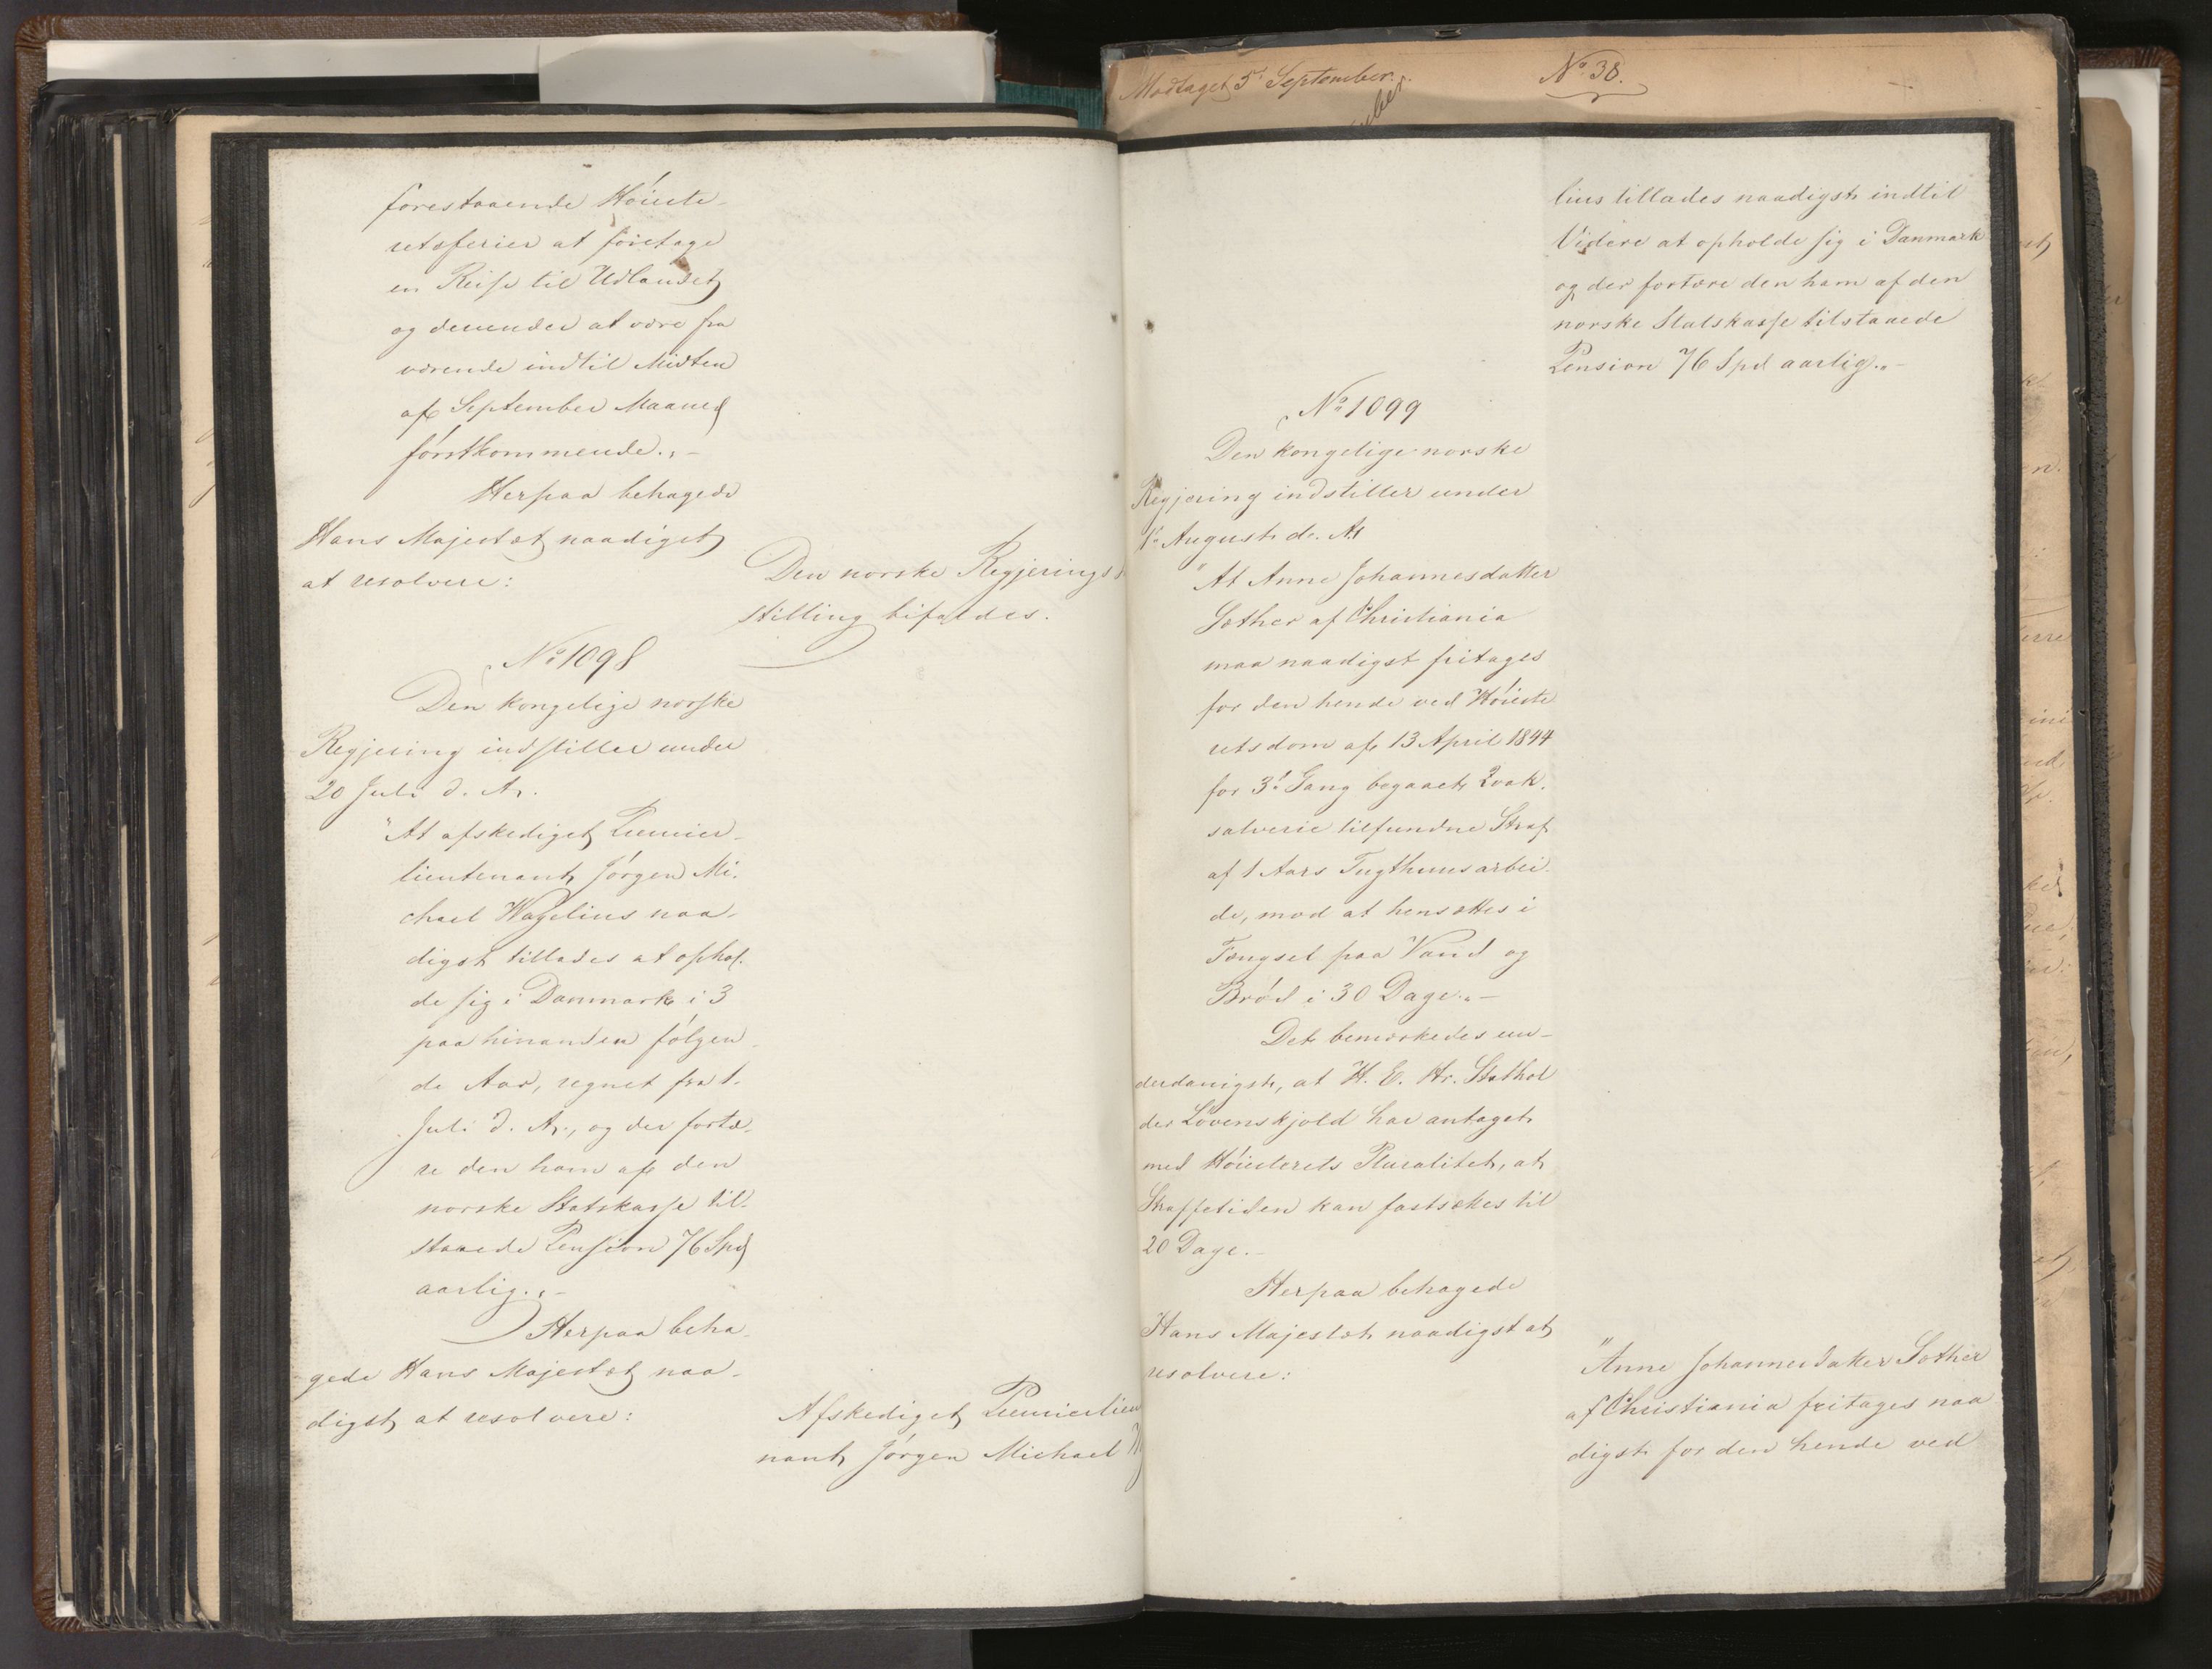 forestaaende Höieste-
retsferier at foretage
en Reise til Udlandet
og derunder at være fra
værende indtil Midten
af September Maaned
förstkommende."-
Herpaa behagede
Hans Majestæt naadigst
at resolvere:
Den norske Regjerings
stilling bifaldes.
No 1098
Den kongelige norske
Regjering indstiller under
20 Juli d. Ar.
"At afskediget Premier-
lieutenant Jörgen Mi-
chael Wagelius naa-
digst tillades at ophol-
de sig i Danmark i 3
paa hinanden fölgen-
de Aar, regnet fra 1.
Juli d. Ar., og der fortæ-
re den ham af den
norske Statskasse til-
staaede Pension 76 Spd
aarlig."-
Herpaa beha-
gede Hans Majestæt naa-
digst at resolvere:
Afskediget Premierlieu
nant Jörgen Michael
Modtaget 5 September.
No 38.
lius tillades naadigst indtil
Videre at opholde sig i Danmark
og der fortære den ham af den
norske Statskasse tilstaaede
Pension 76 Spd aarlig."-
No 1099
Den kongelige norske
Regjering indstiller under
1e August d. Ar
"At Anne Johannesdatter
Sæther af Christiania
maa naadigst fritages
for den hende ved Höieste
retsdom af 13 April 1844
for 3die Gang begaaet Qvak-
salverie tilfundne Straf
af 1 Aars Tugthuusarbei-
de, mod at hensættes i
Fængsel paa Vand og
Bröd i 30 Dage."-
Det bemærkedes un-
derdanigst, at H. E. Hr. Stathol
der Lövenskjold har antaget
med Höiesterets Pluralitet, at
Straffetiden kan fastsættes til
20 Dage.-
Herpaa behagede
Hans Majestæt naadigst at
resolvere:
"Anne Johannesdatter Sæther
af Christiania fritages naa
digst for den hende ved